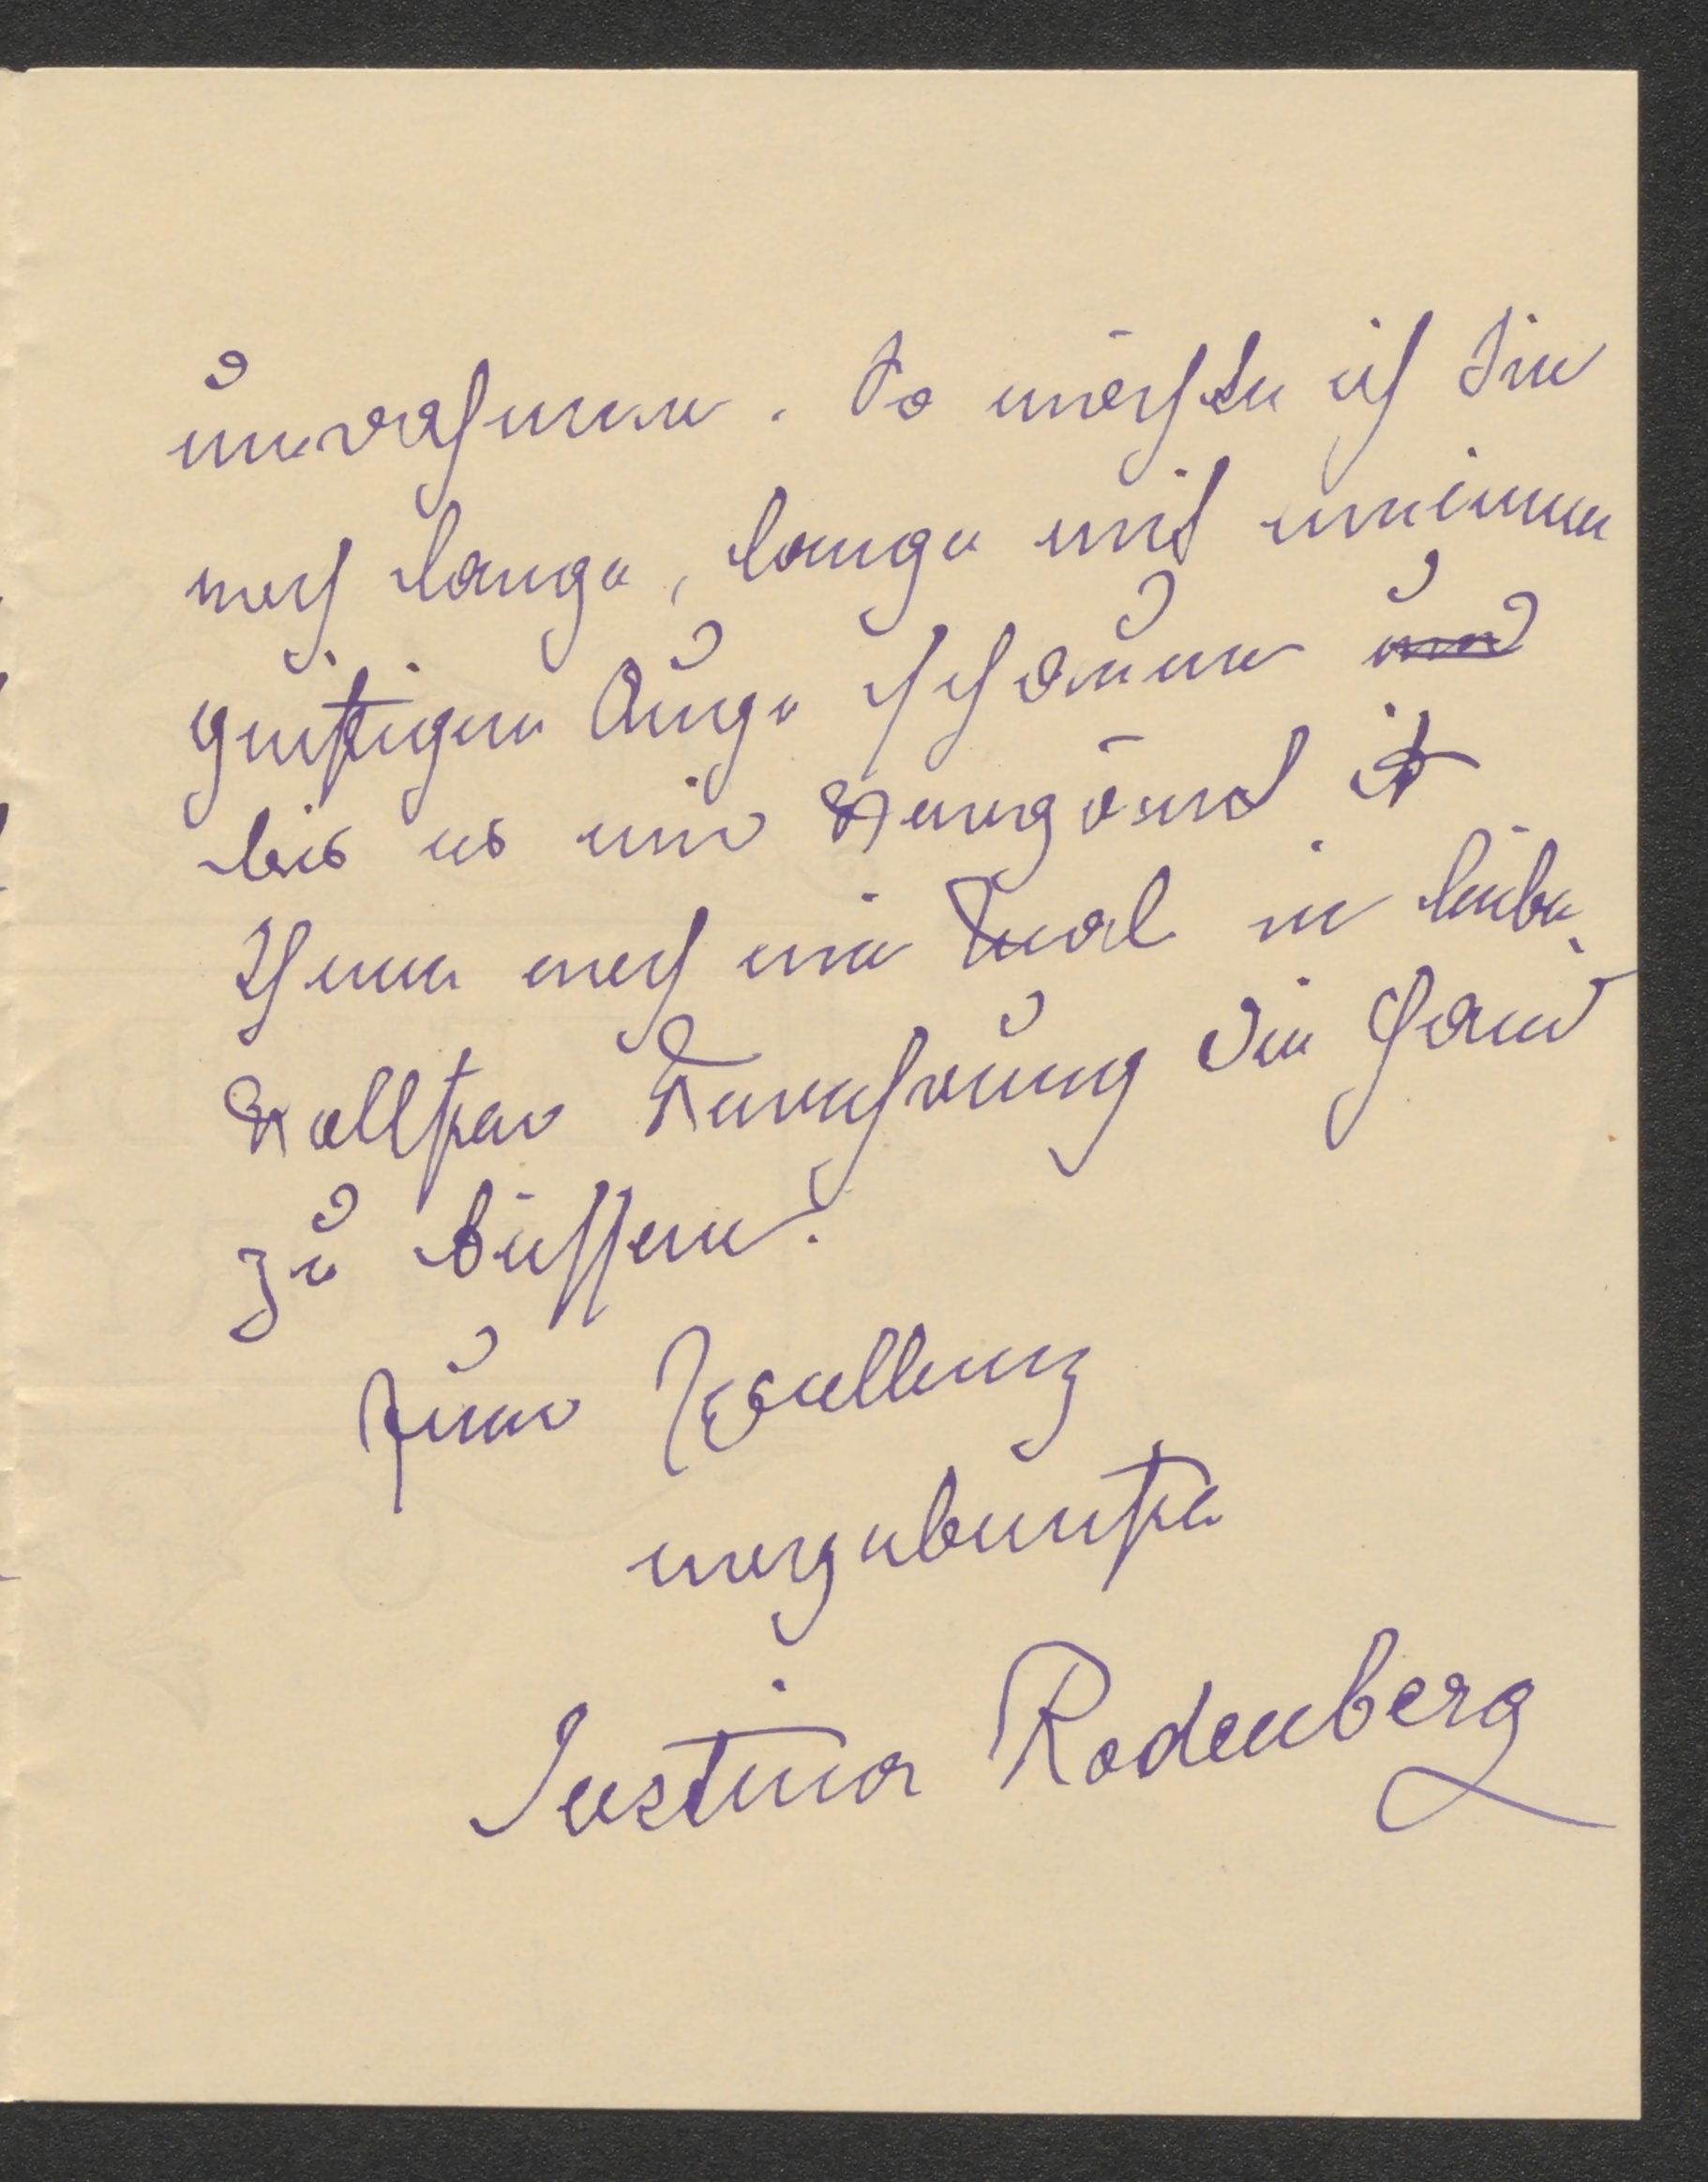 umrahmen. So möchte ich Sie
noch lange, lange mit meinem
geistigen Auge schauen und
bis es mir vergönnt ist
Ihnen noch ein Mal in liebe-
vollster Verehrung die Hand
zu küssen!
Eurer Excellenz
ergebenste
Justina Rodenberg